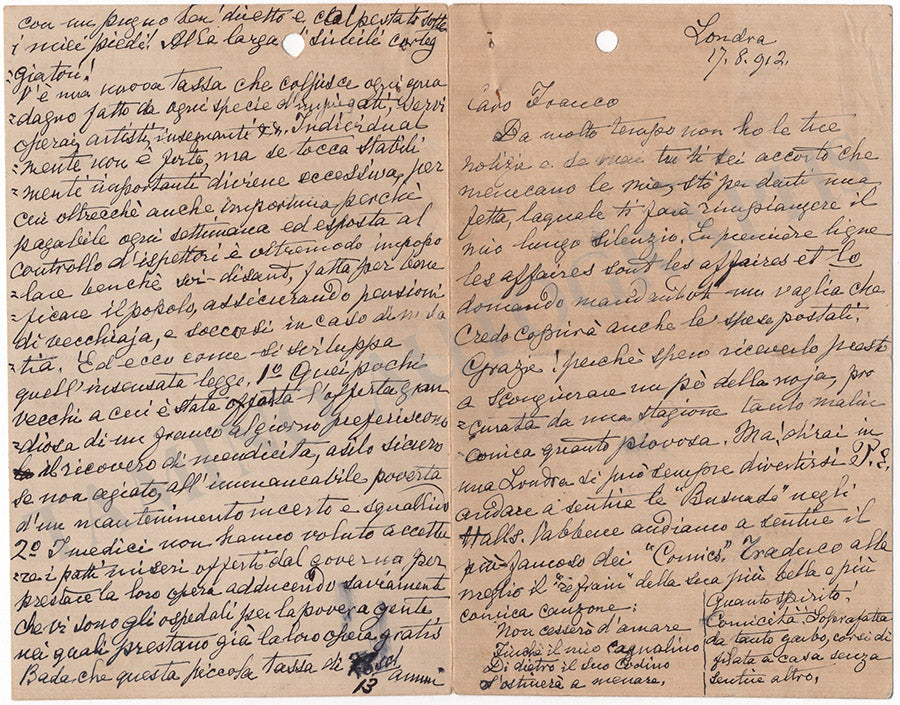 con un pugno ben diretto e calpestato sotto
i miei piedi! Alla larga simili corteg
-giatori!
V'è una nuova tassa che colpisce ogni gua
-dagno fatto da ogni specie d'impiegati, servi
operai, artisti, insegnanti &. Individual
-mente non è forte, ma se tocca stabili
-menti importanti diviene eccessiva, per
cui oltrecchè anche importuna perchè
pagabile ogni settimana ed esposta al
controllo d'ispettori è oltremodo impopo
-lare benchè soi-disant, fatta per bene
-ficare il popolo, assicurando pensioni
di vecchiaja, e soccorsi in caso di mala
-tia. Ed ecco come si sviluppa
quell'insensata legge. 1º Quei pochi
vecchi a cui è stata offerta l'offerta gran
-diosa di un franco al giorno preferiscono
il ricovero di mendicità, asilo sicuro
se non agiato, all'immancabile poverta
d'un mantenimento incerto e squallido
2º I medici non hanno voluto accetta
-re i patti miseri offerti dal governo per
prestare la loro opera adducendo saviamente
che vi sono gli ospedali per la povera gente
nei quali prestano già la loro opera gratis
Bada che questa piccola tassa di sol
13 annui
Londra
17.8.912.
Caro Franco
Da molto tempo non ho le tue
notizie e se mai tu ti sei accorto che
mancano le mie, sto per darti una
fetta, laquale ti farà rimpiangere il
mio lungo silenzio. En première ligne
les affaires sont les affaires et te
domando mandandoti un vaglia che
Credo coprirà anche le spese postali.
Grazie! perchè spero riceverlo presto
a scongiurare un pò della noja, pro
-curata da una stagione tanto malin
conica quanto piovosa. Ma, dirai in
una Londra si può sempre divertirsi P. E.
andare a sentire le "Busnade" negli
Halls. Vabbene andiamo a sentire il
più famoso dei "Comics". Traduco alla
meglio il "refrain" della sua più bella e più
comica canzone:
Non cesserò d'amare
Finchè il mio cagnolino
Di dietro il suo Codino
S'ostinerà a menare.
Quanto spirito!
Comicità. Soprafatta
da tanto garbo, corsi di
filata a casa senza
sentire altro.